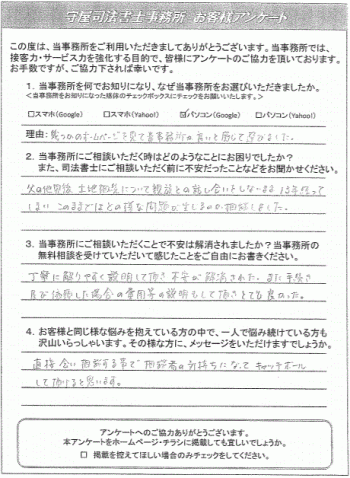 守屋司法書士事務所 お客様アンケート
この度は、当事務所をご利用いただきましてありがとうございます。当事務所では、
接客力・サービス力を強化する目的で、皆様にアンケートのご協力を頂いております。
お手数ですが、ご協力下されば幸いです。
1. 当事務所を何でお知りになり、なぜ当事務所をお選びいただきましたか。
＜当事務所をお知りになった媒体のチェックボックスにチェックをお願いいたします。＞
□スマホ(Google) □スマホ(Yahoo!) ☑パソコン(Google) □パソコン(Yahoo!)
理由: 幾つかのホームページを見て 貴事務所が 良いと感じて選びました。
2. 当事務所にご相談いただく時はどのようなことにお困りでしたか？
また、司法書士にご相談いただく前に不安だったことなどをお聞かせください。
父の他界後 土地相続について 親族との話し合いもしないまま 13年経って
しまい このままではどの様な問題が生じるのか 相談しました。
3. 当事務所にご相談いただくことで不安は解消されましたか？当事務所の
無料相談を受けていただいて感じたことをご自由にお書きください。
丁寧に 解りやすく説明して頂き 不安が解消された。また 手続き
を依頼した場合の費用等の説明もして頂きとても良かった。
4. お客様と同じ様な悩みを抱えている方の中で、一人で悩み続けている方も
沢山いらっしゃいます。その様な方に、メッセージをいただけますでしょうか。
直接会い 相談する事で 相談者の気持ちになって キャッチボール
して頂けると思います。
アンケートへのご協力ありがとうございます。
本アンケートをホームページ・チラシに掲載しても宜しいでしょうか。
□ 掲載を控えてほしい場合のみチェックをしてください。